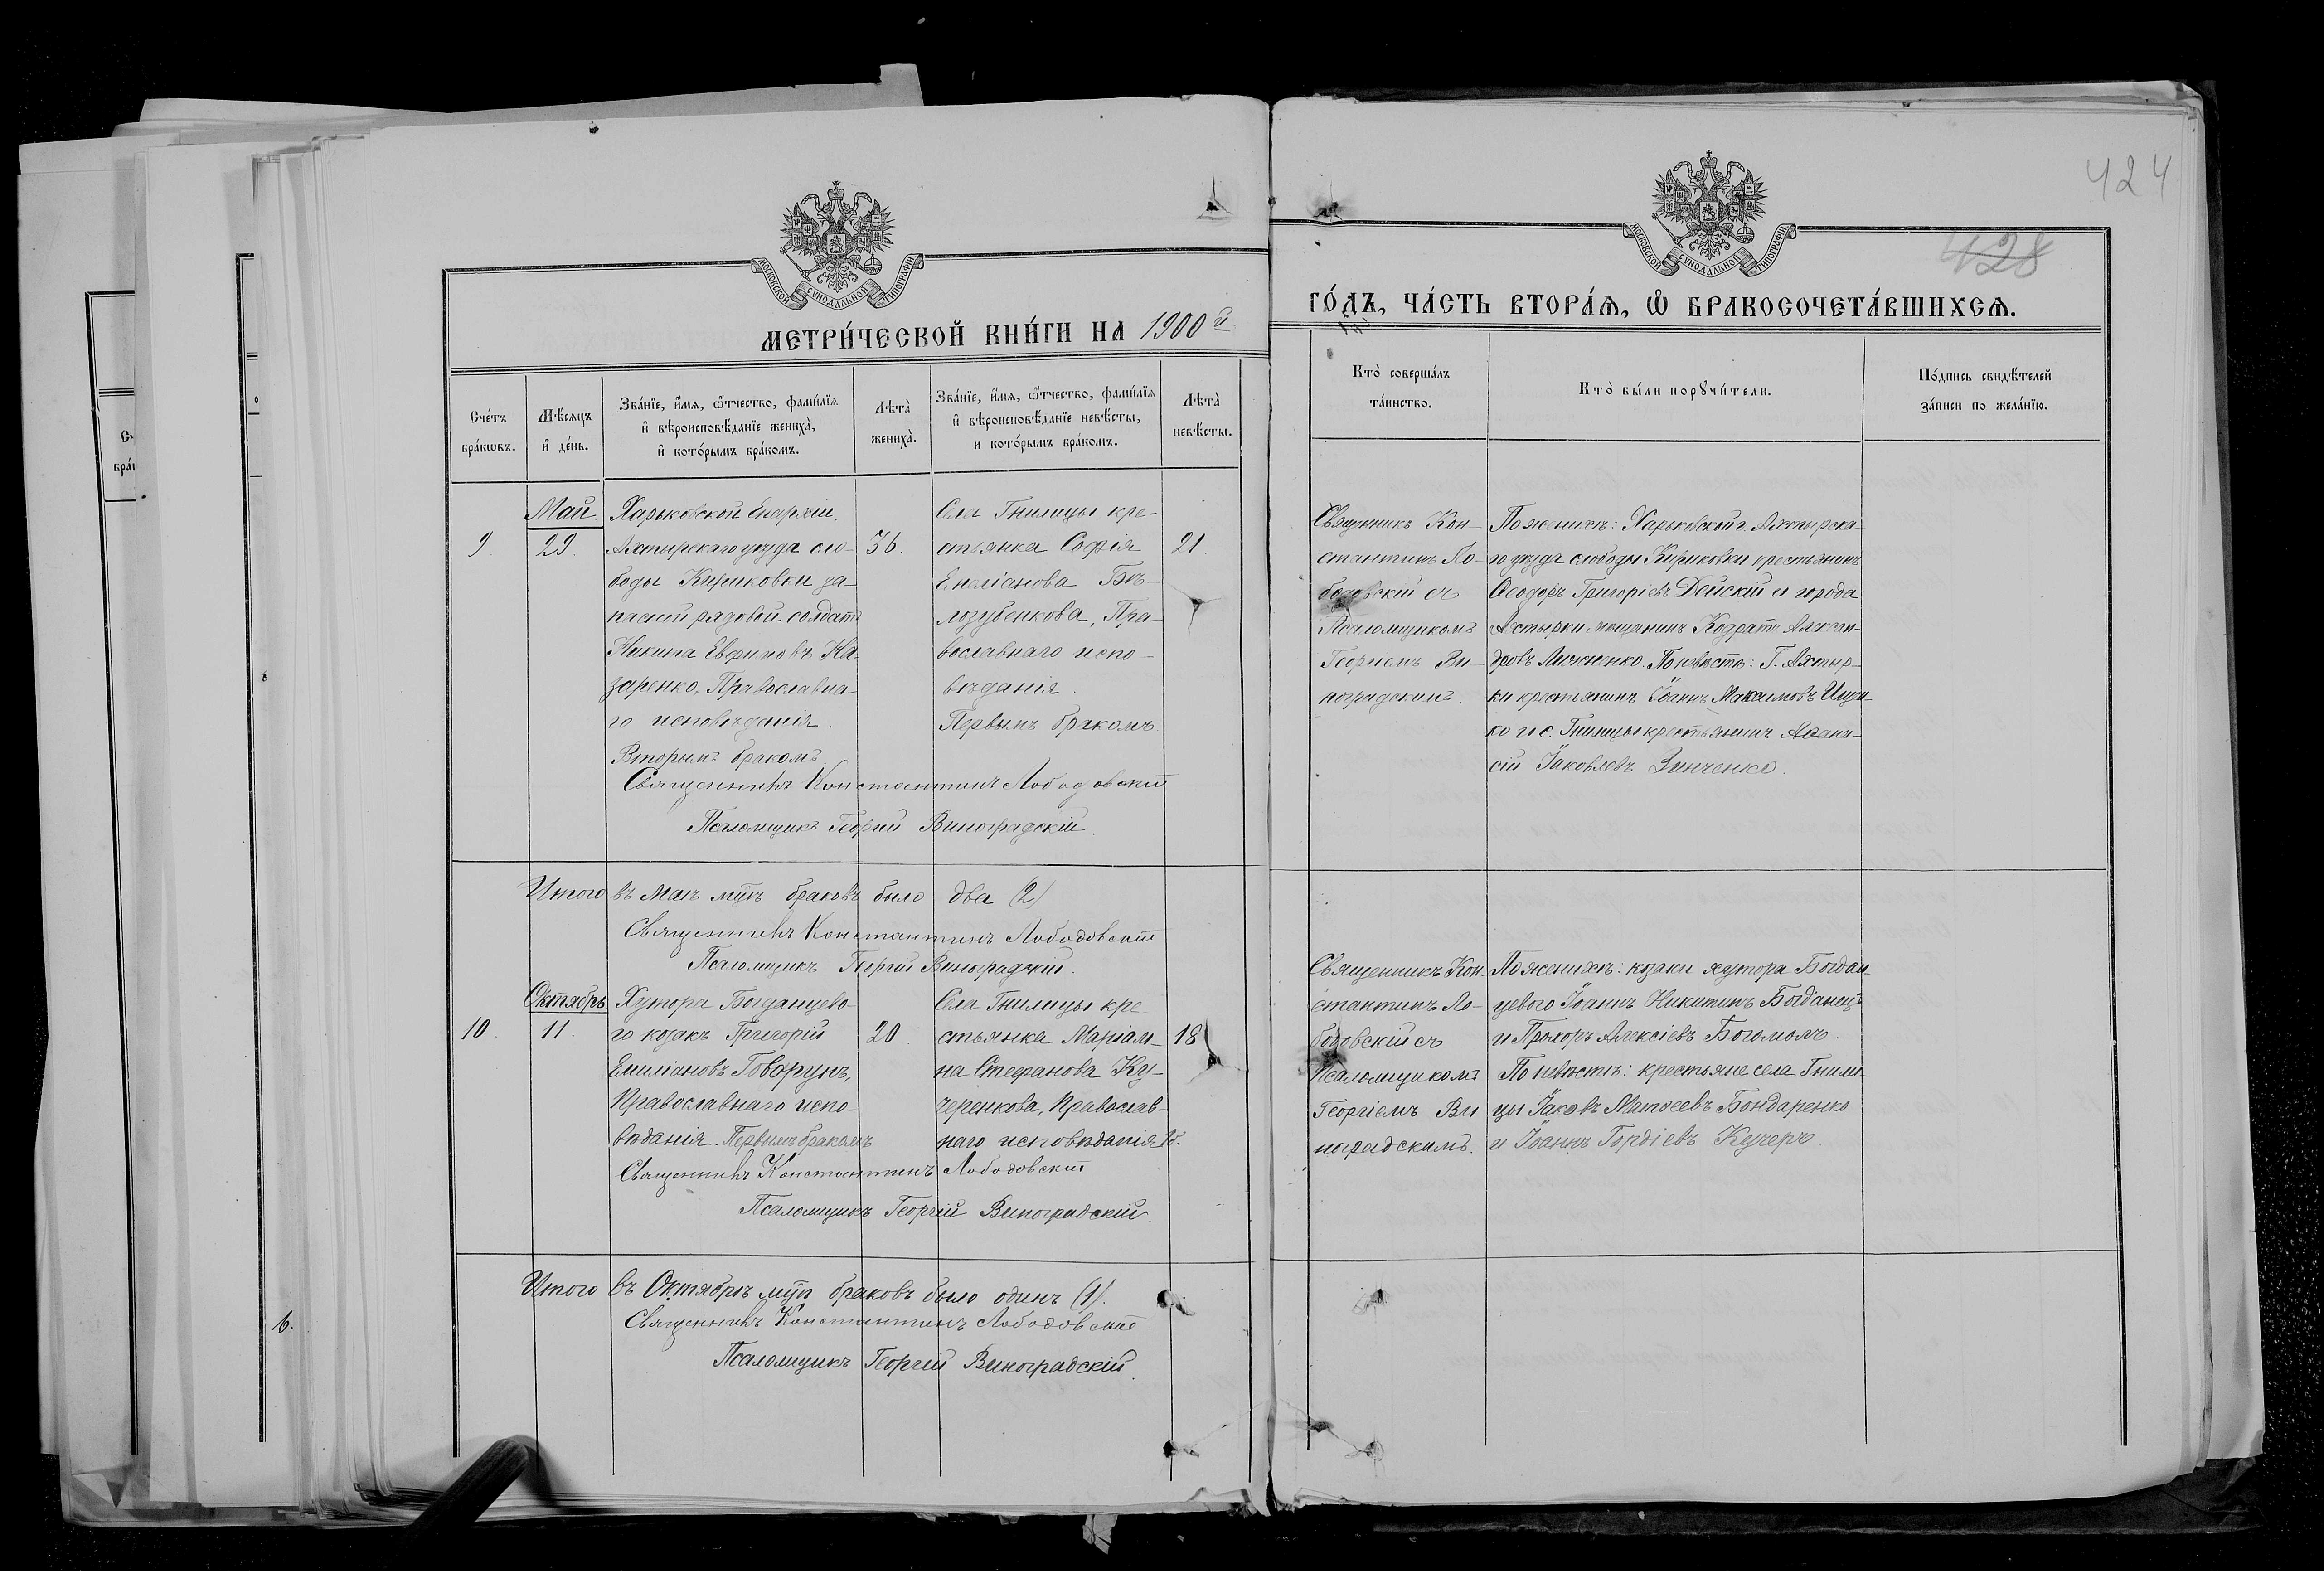 424
428
МОСКОВСКОЙ СѴНОДАЛЬНОЙ ТИПОГРАФІИ
МОСКОВСКОЙ СѴНОДАЛЬНОЙ ТИПОГРАФІИ
МЕТРИ́ЧЕСКОЙ КНИ́ГИ НА 1900й
ГО́ДЪ, ЧА́СТЬ ВТОРА́Ѧ, Ѽ БРАКОСОЧЕТА́ВШИХСѦ.
Сче́тъ бра́кѡвъ.
Мѣ́сяцъ и҆ де́нь.
Зва́нїе, и҆́мѧ, ѻ҆́тчество, фами́лїѧ
и҆ вѣроисповѣ́данїе жениха̀,
и҆ кото́рымъ бра́комъ.
Лѣта̀ жениха̀.
Зва́нїе, и҆́мѧ, ѻ҆́тчество, фами́лїѧ
и҆ вѣроисповѣ́данїе невѣ́сты,
и кото́рымъ бра́комъ.
Лѣта̀ невѣ́сты.
Кто̀ соверша́лъ
та́инство.
Кто̀ бы́ли порꙋчи́тели.
По́дпись свидѣ́телей
за́писи по жела́нїю.
9.
Май.
29.
Харьковской Епархіи,
Ахтырскаго уѣзда сло-
боды Кириковки за-
пасной рядовой солдатъ
Никита Евфимовъ На-
заренко, Православна-
го исповѣданія.
Вторымъ бракомъ.
36.
Села Гнилицы кре-
стьянка Софія
Емиліанова Бѣ-
лозубенкова, Пра-
вославнаго испо-
вѣданія.
Первымъ бракомъ
21.
Священникъ Кон-
стантинъ Ло-
бодовскій съ
Псаломщикомъ
Георгіемъ Ви-
ноградскимъ.
По женихѣ: Харьковской г. Ахтырска-
го уѣзда слободы Кириковки крестьянинъ
Ѳеодоръ Григоріевъ Дейскій и города
Ахтырки мѣщанинъ Кодратъ Алексан-
дровъ По невѣстѣ: Г. Ахтыр-
ки крестьянинъ Іоаннъ Максимовъ
ко и с. Гнилицы крестьянинъ Аѳана-
сій Іаковлевъ Зинченко.
Священникъ Константинъ Лободовскій
Псаломщикъ Георгій Виноградскій.
Итого въ Маѣ мцѣ браковъ было два (2)
Священникъ Константинъ Лободовскій
Псаломщикъ Георгій Виноградскій.
10.
Октябрь
11.
Хутора Богданцево-
го козакъ Григорій
Емиліановъ Говорунъ,
Православнаго испо-
вѣданія. Первымъ бракомъ
20
Села Гнилицы кре-
стьянка Маріам-
на Стефанова Ку-
черенкова, Православ-
наго исповѣданія
18
Священникъ Кон-
стантинъ Ло-
бодовскій съ
Псаломщикомъ
Георгіемъ Ви
ноградскимъ.
По женихѣ: козаки хутора Богдан-
цевого Іоаннъ Никитинъ Богданецъ
и Прохоръ Алексіевъ Богомолъ.
По невѣстѣ: крестьяне села Гнили-
цы Іаковъ Матѳеевъ Бондаренко
и Іоаннъ Гордіевъ Кучеръ.
Священникъ Константинъ Лободовскій
Псаломщикъ Георгій Виноградскій.
Итого въ Октябрѣ мцѣ браковъ было одинъ (1).
Священникъ Константинъ Лободовскій
Псаломщикъ Георгій Виноградскій.